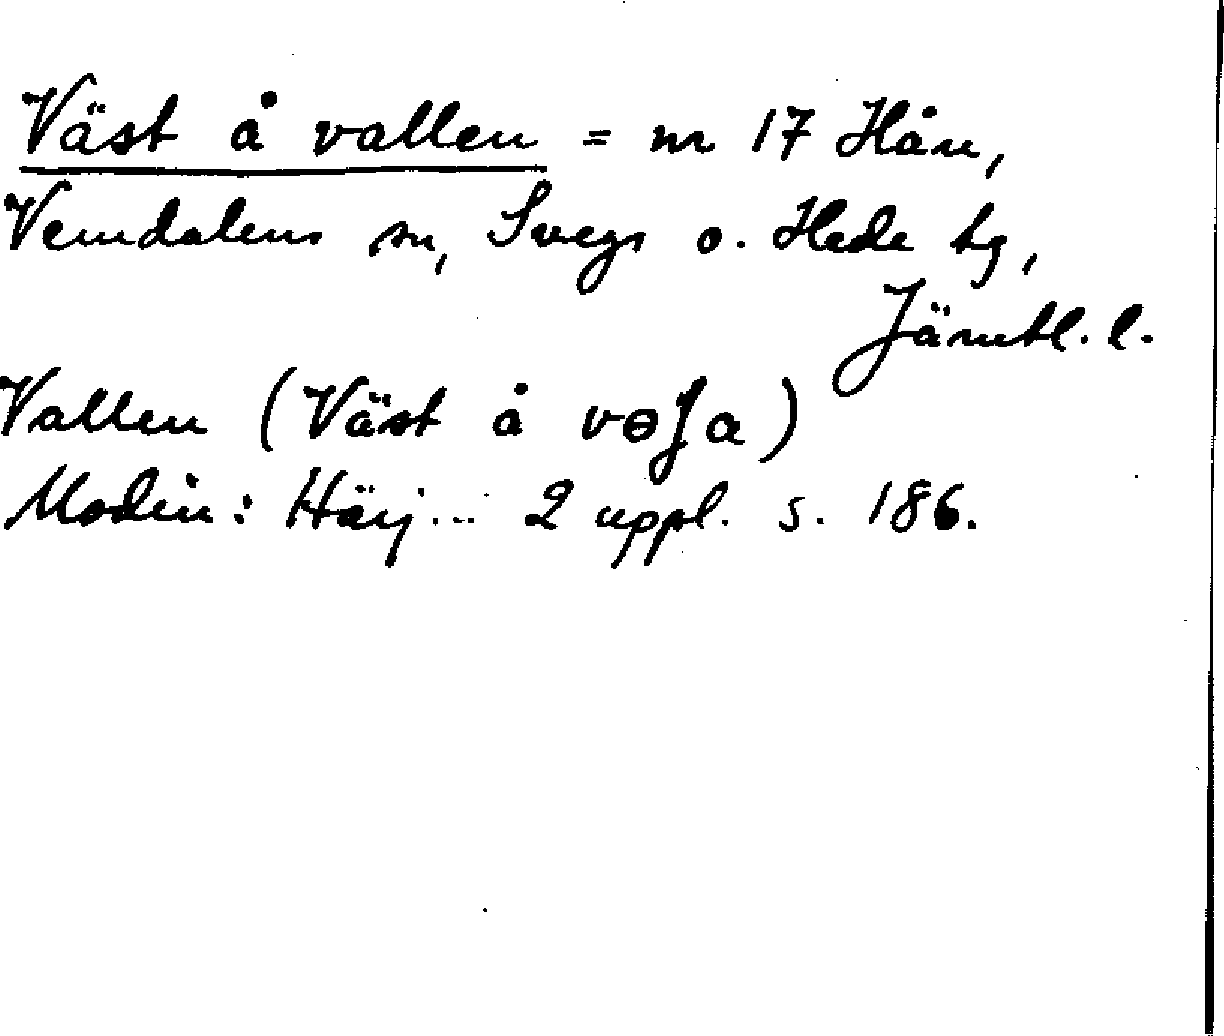 Väst å vallen = nr 17 Hån,
Vemdalens sn, Svegs o. Hede tg,
Jämtl. l.
Vallen (Väst å voʃa)
Modin: Härj... 2 uppl. s. 186.